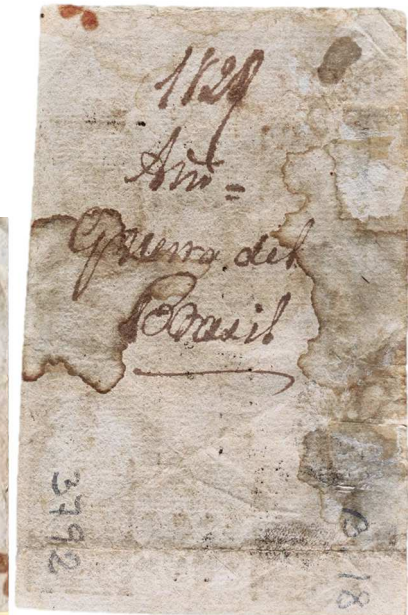 1828
Año =
Guerra del
Brasil
3792
18